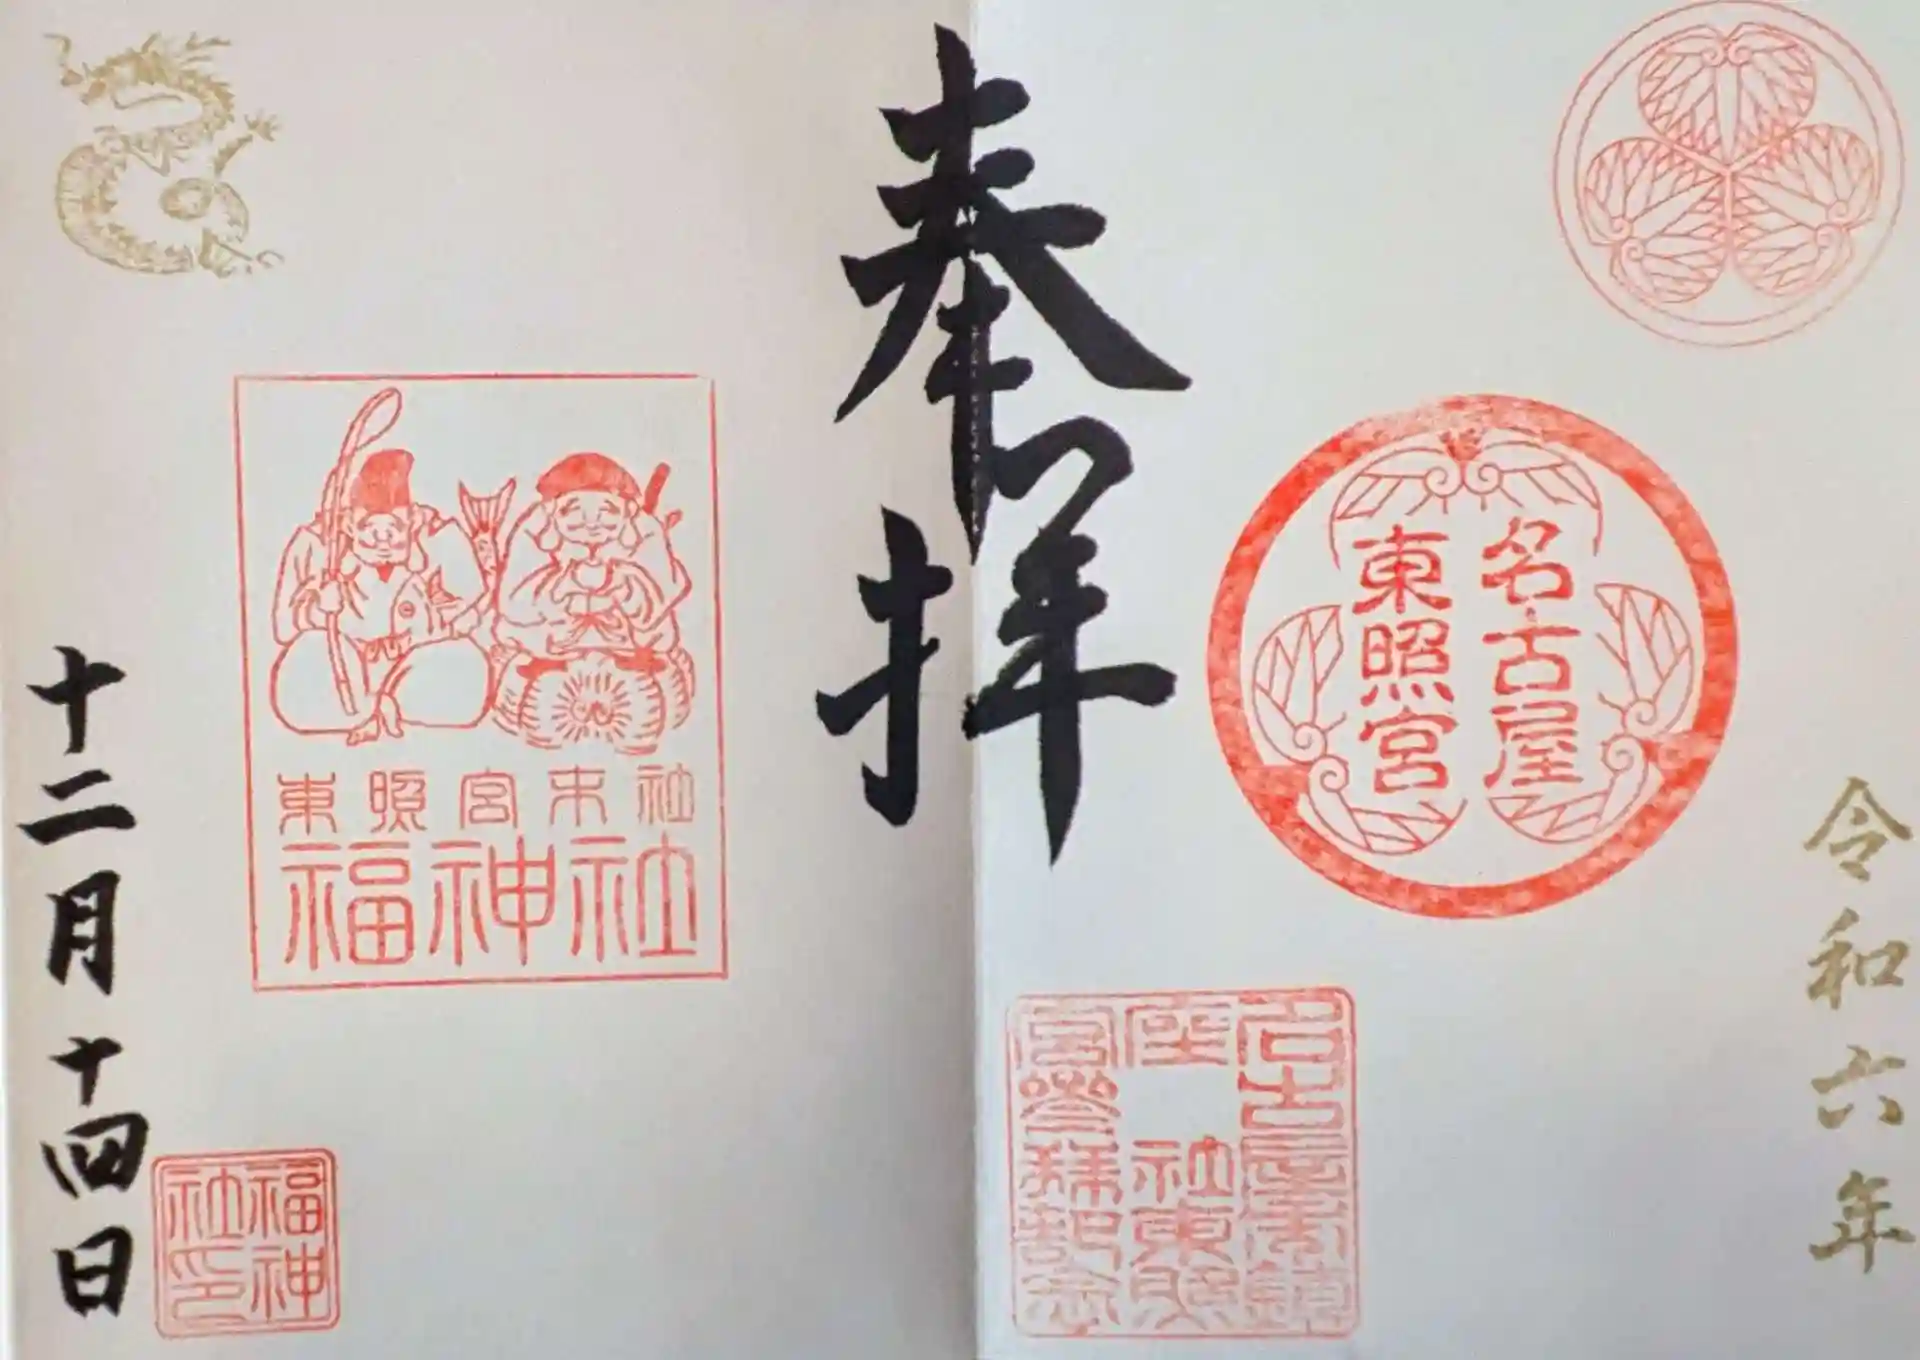 令和六年
名古屋
東照宮
名古屋市鎮
座 社東照
宮参拝記念
奉拝
東照宮末社
福神社
福神
社印
十二月十四日